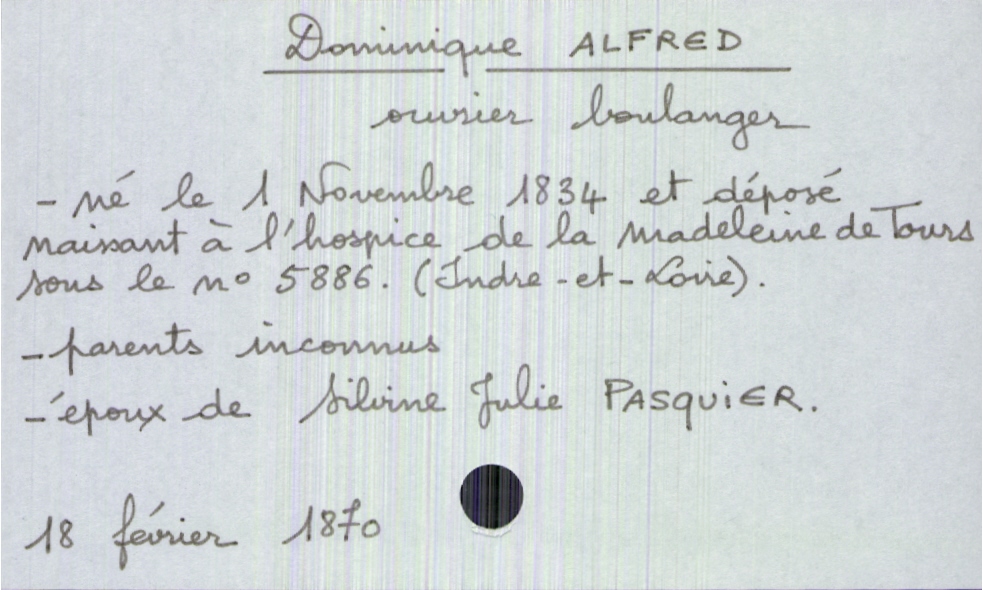 Dominique ALFRED
ouvrier boulanger
- né le 1 Novembre 1834 et déposé
naissant à l'hospice de la Madeleine de Tours
sous le n° 5886. (Indre-et-Loire).
- parents inconnus
- époux de Silvine Julie PASQUIER.
18 février 1870